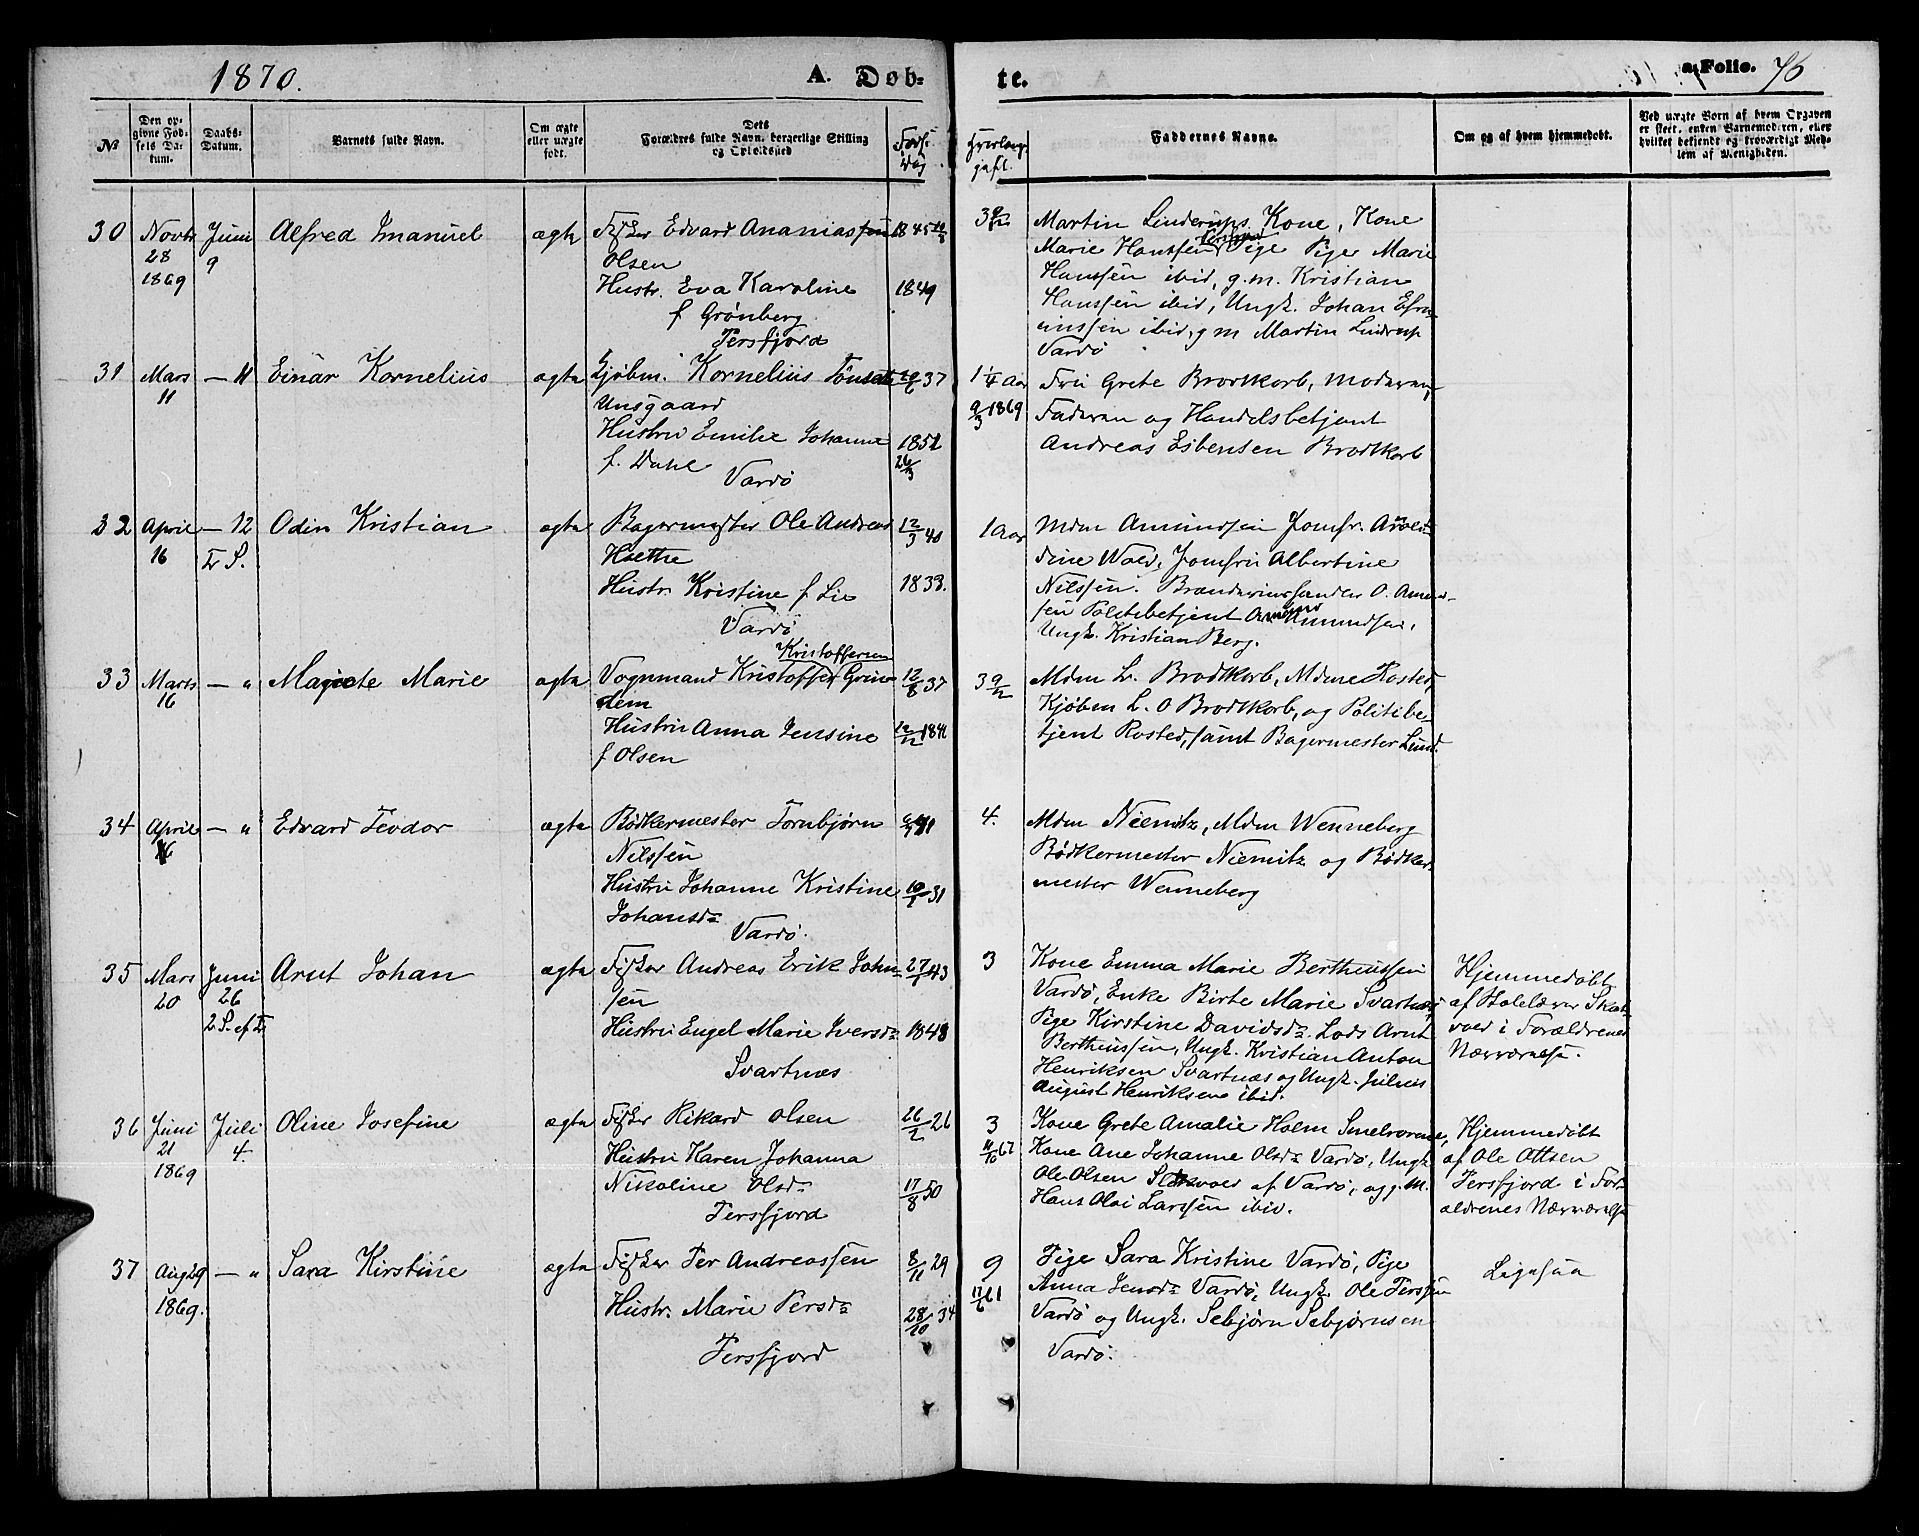 1870. A. Døb-
te. a. Folio. 76
No
Den op-
givne Fød-
sels Da-
tum.
Daabs-
Datum.
Barnets fulde Navn.
Om ægte
eller uægte
født.
Dets
Forældres fulde Navn, borgerlige Stilling
og Opholdssted
Føds:
Dag
Hvorlænge
gift.
Faddernes Navne.
Om og af hvem hjemmedøbt.
Ved uægte Børn af hvem Opgaven
er skeet, enten Barnemoderen, eller
hvilket bekjendt og troværdigt Med-
lem af Menigheden.
30
Novbr
28
1869
Juni
9
Alfred Imanuel
ægte
Fisker Edvard Ananiassen
Olsen
Hustr. Eva Karoline
f Grønberg
Persfjord
1845
1849
3 9/12
Martin Linderups Kone, Kone
Marie Hanssen Persfjord Pige Pige Marie
Hanssen ibid, g.m. Kristian
Hanssen ibid, Ungk. Johan Efra-
imssen ibid, g m Martin Lindrup
Vardø
31
Mars
11
— 11
Einar Kornelius
ægte
Kjøbm. Kornelius
Unsgaard
Hustru Emilie Johanne
f. Dahl
Vardø
37
1851
26/3
1 1/4 Aar
9/3 1869
Fru Grete Brodtkorb, Moderen,
Faderen og Handelsbetjent
Andreas Esbensen Brodtkorb
32
April
16
— 12
Tr S.
Odin Kristian
ægte
Bagermester Ole Andreas
Hæthe
Hustr. Kristine f Lie
Vardø
12/3 40
1833.
1 Aar
Mdm Amundsen Jomfr.
dine Wold, Jomfru Albertine
Nilssen. Brændevinshandler O. Amund-
sen Politibetjent Amundsen,
Ungk. Kristian Berg.
33
Marts
16
— "
Magrete Marie
ægte
Kristoffersen
Vognmand Kristoffer Grin-
dem
Hustru Anna Jensine
f Olsen
12/8 37
12/12 1841
3 9/12
Mdm L. Brodtkorb, Mdme Rosted,
Kjøbm L. O Brodtkorb, og Politibe-
tjent Rosted, samt Bagermester Lund.
34
April
16
— "
Edvard Teodor
ægte
Bødkermester Tornbjørn
Nilssen
Hustru Johanne Kristine
Johansdr
Vardø.
41
31
4.
Mdm Niemitz, Mdm Wenneberg
Bødkermester Niemitz og Bødker-
mester Wenneberg
35
Mars
20
Juni
26
2 S. ef T
Arnt Johan
ægte
Fisker Andreas Erik John-
sen
Hustru Engel Marie Iversdr
Svartnæs
43
1848
3
Kone Emma Marie Bertheussen
Vardø, Enke Birte Marie Svartnæs,
Pige Kirstine Davidsdr. Lods Arnt
Bertheussen, Ungk. Kristian Anton
Henriksen Svartnæs og Ungk. Julius
August Henriksen ibid.
Hjemmedøbt
af Skolelærer Skat-
vold i Forældrenes
Nærværelse.
36
Juni
21
1869
Juli
4.
Oline Josefine
ægte
Fisker Rikard Olsen
Hustru Karen Johanna
Nikoline Olsdr
Persfjord
26/2 26
17/8 50
3
11/10 67
Kone Grete Amalie Holm Smelroren,
Kone Ane Johanne Olsdr Vardø, Ungk
Ole Olsen af Vardø, og g. M.
Hans Olai Larssen ibid.
Hjemmedøbt
af Ole Ottsen
Persfjord i For-
ældrenes Nærværelse
37
Aug 29
1869.
— "
Sara Kirstine
ægte
Fisker Per Andreassen
Hustr. Marie Persdr
Persfjord
8/11 29
28/10 34
9
17/6 61
Pige Sara Kristine Vardø, Pige
Anna Jensdr Vardø, Ungk. Ole Perssen
Vardø og Ungk. Sebjørn Sebjørnsen
Vardø.
Ligesaa